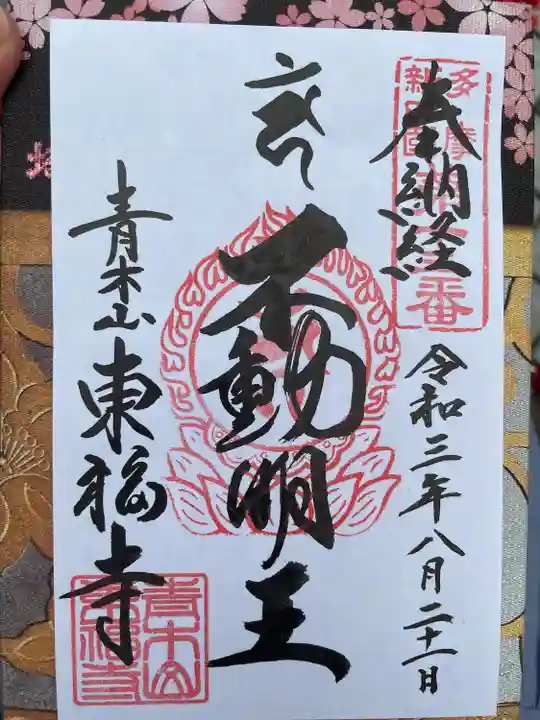 奉納経
多摩
新四国
番
令和三年八月二十一日
不動明王
青木山 東福寺
青木山
東福寺